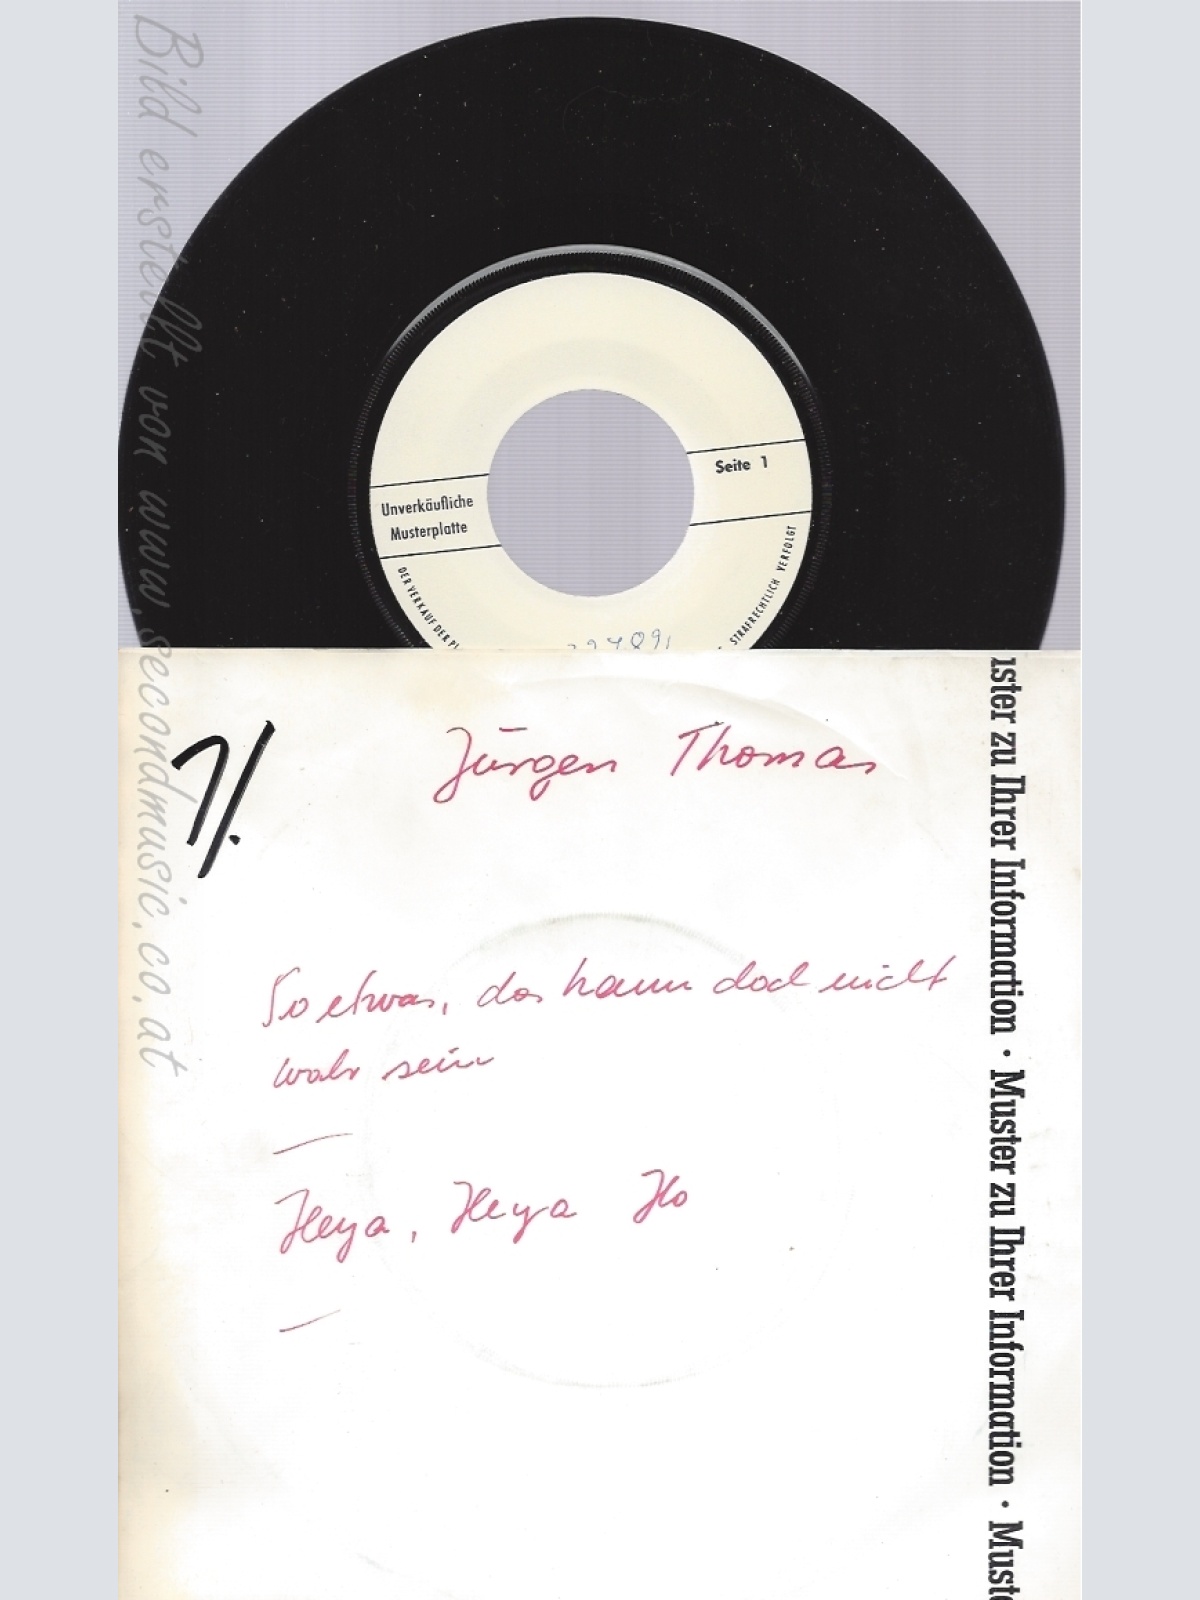 Bild erstellt von www.secondmusic.co.at
Seite 1
Unverkäufliche
Musterplatte
DER VERKAUF DER
STRAFRECHTLICH VERFOLGT
Jürgen Thomas
So etwas, das kann doch nicht
wahr sein
Heya, Heya Ho
zu Ihrer Information · Muster zu Ihrer Information ·